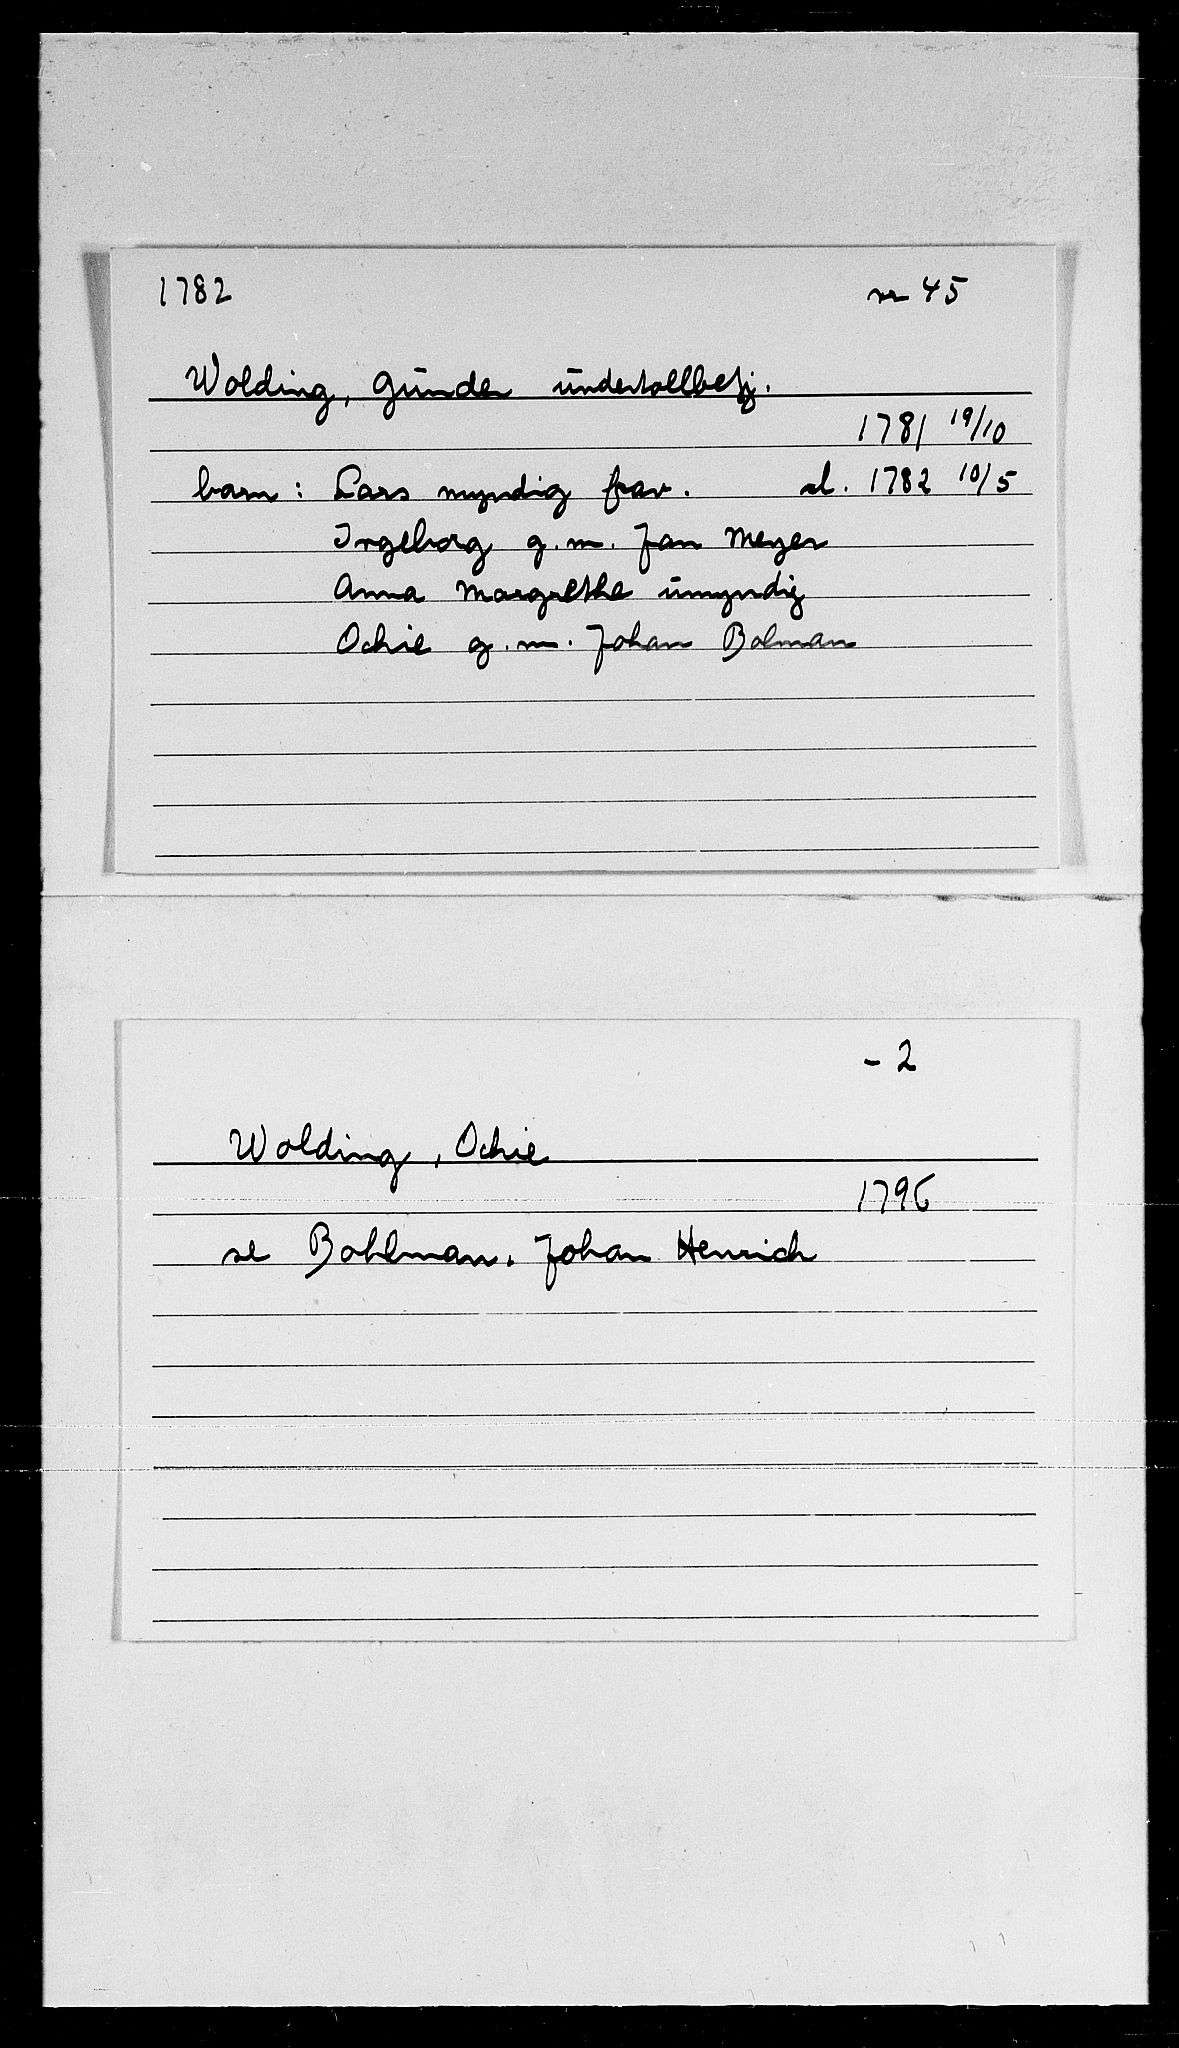 1782 nr 45
Wolding, Gunder undertollbetj.
1781 19/10
barn: Lars myndig frav. sl. 1782 10/5
Ingeborg g.m. Jan Meyer
Anna Margrethe umyndig
Ochie g.m. Johan Bolman
- 2
Wolding, Ochie
1796
se Bohlman, Johan Henrich